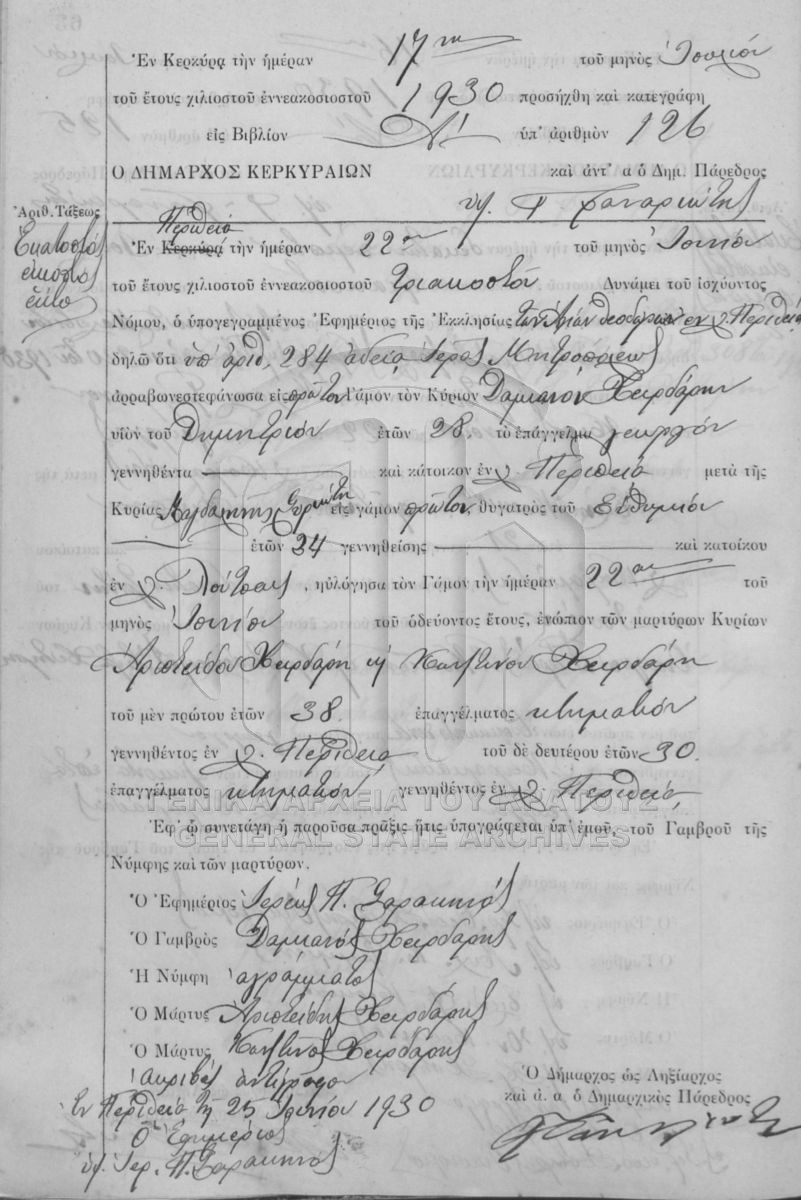 Ἐν Κερκύρᾳ τὴν ἡμέραν 17ην τοῦ μηνὸς Ἰουλίου
τοῦ ἔτους χιλιοστοῦ ἐννεακοσιοστοῦ 1930 προσήχθη καὶ κατεγράφη
εἰς Βιβλίον Α' ὑπ' ἀριθμὸν 126
Ο ΔΗΜΑΡΧΟΣ ΚΕΡΚΥΡΑΙΩΝ καὶ ἀντ' α ὁ Δημ. Πάρεδρος
Ἀριθ. Τάξεως
Ἑκατοστὸς
εἰκοστὸς
ἕκτος
Περίθεια
Ἐν Κερκύρᾳ τὴν ἡμέραν 22αν τοῦ μηνὸς Ἰουνίου
τοῦ ἔτους χιλιοστοῦ ἐννεακοσιοστοῦ τριακοστοῦ Δυνάμει τοῦ ἰσχύοντος
Νόμου, ὁ ὑπογεγραμμένος Ἐφημέριος τῆς Ἐκκλησίας τῶν Ἁγίων Θεοδώρων ἐν χ. Περίθεια
δηλῶ ὅτι ὑπ' ἀριθ. 284 ἀδείᾳ Ἱερᾶς Μητροπόλεως
ἀρραβωνεστεφάνωσα εἰς πρῶτον Γάμον τὸν Κύριον Δαμιανὸν Χειρδάρην
υἱὸν τοῦ Δημητρίου ἐτῶν 28 τὸ ἐπάγγελμα γεωργὸν
γεννηθέντα καὶ κάτοικον ἐν χ. Περίθεια μετὰ τῆς
Κυρίας Μαγδαληνῆς εἰς γάμον πρῶτον θυγατρὸς τοῦ Εὐθυμίου
ἐτῶν 24 γεννηθείσης καὶ κατοίκου
ἐν χ. Λούτσας, ηὐλόγησα τὸν Γάμον τὴν ἡμέραν 22αν τοῦ
μηνὸς Ἰουνίου τοῦ ὁδεύοντος ἔτους, ἐνώπιον τῶν μαρτύρων Κυρίων
Ἀριστείδου Χειρδάρη κ Κωνστίνου Χειρδάρη
τοῦ μὲν πρώτου ἐτῶν 38 ἐπαγγέλματος κτηματίου
γεννηθέντος ἐν χ. Περίθεια τοῦ δὲ δευτέρου ἐτῶν 30.
ἐπαγγέλματος κτηματίου γεννηθέντος ἐν χ. Περίθεια
ΓΕΝΙΚΑ ΑΡΧΕΙΑ ΤΟΥ ΚΡΑΤΟΥΣ
Ἐφ' ᾧ συνετάγη ἡ παροῦσα πρᾶξις ἥτις ὑπογράφεται ὑπ' ἐμοῦ, τοῦ Γαμβροῦ τῆς
GENERAL STATE ARCHIVES
Νύμφης καὶ τῶν μαρτύρων.
Ὁ Ἐφημέριος Ἱερεὺς Π. Σαρακηνός
Ὁ Γαμβρὸς Δαμιανὸς Χειρδάρης
Ἡ Νύμφη ἀγράμματος
Ὁ Μάρτυς Ἀριστείδης Χειρδάρης
Ὁ Μάρτυς Κωνστῖνος Χειρδάρης
Ἀκριβὲς ἀντίγραφον
Ἐν Περίθεια τῇ 25 Ἰουνίου 1930
Ὁ Ἐφημέριος
ὑπ. Ἱερ. Π. Σαρακηνός
Ὁ Δήμαρχος ὡς Ληξίαρχος
καὶ ἀ. α ὁ Δημαρχικὸς Πάρεδρος